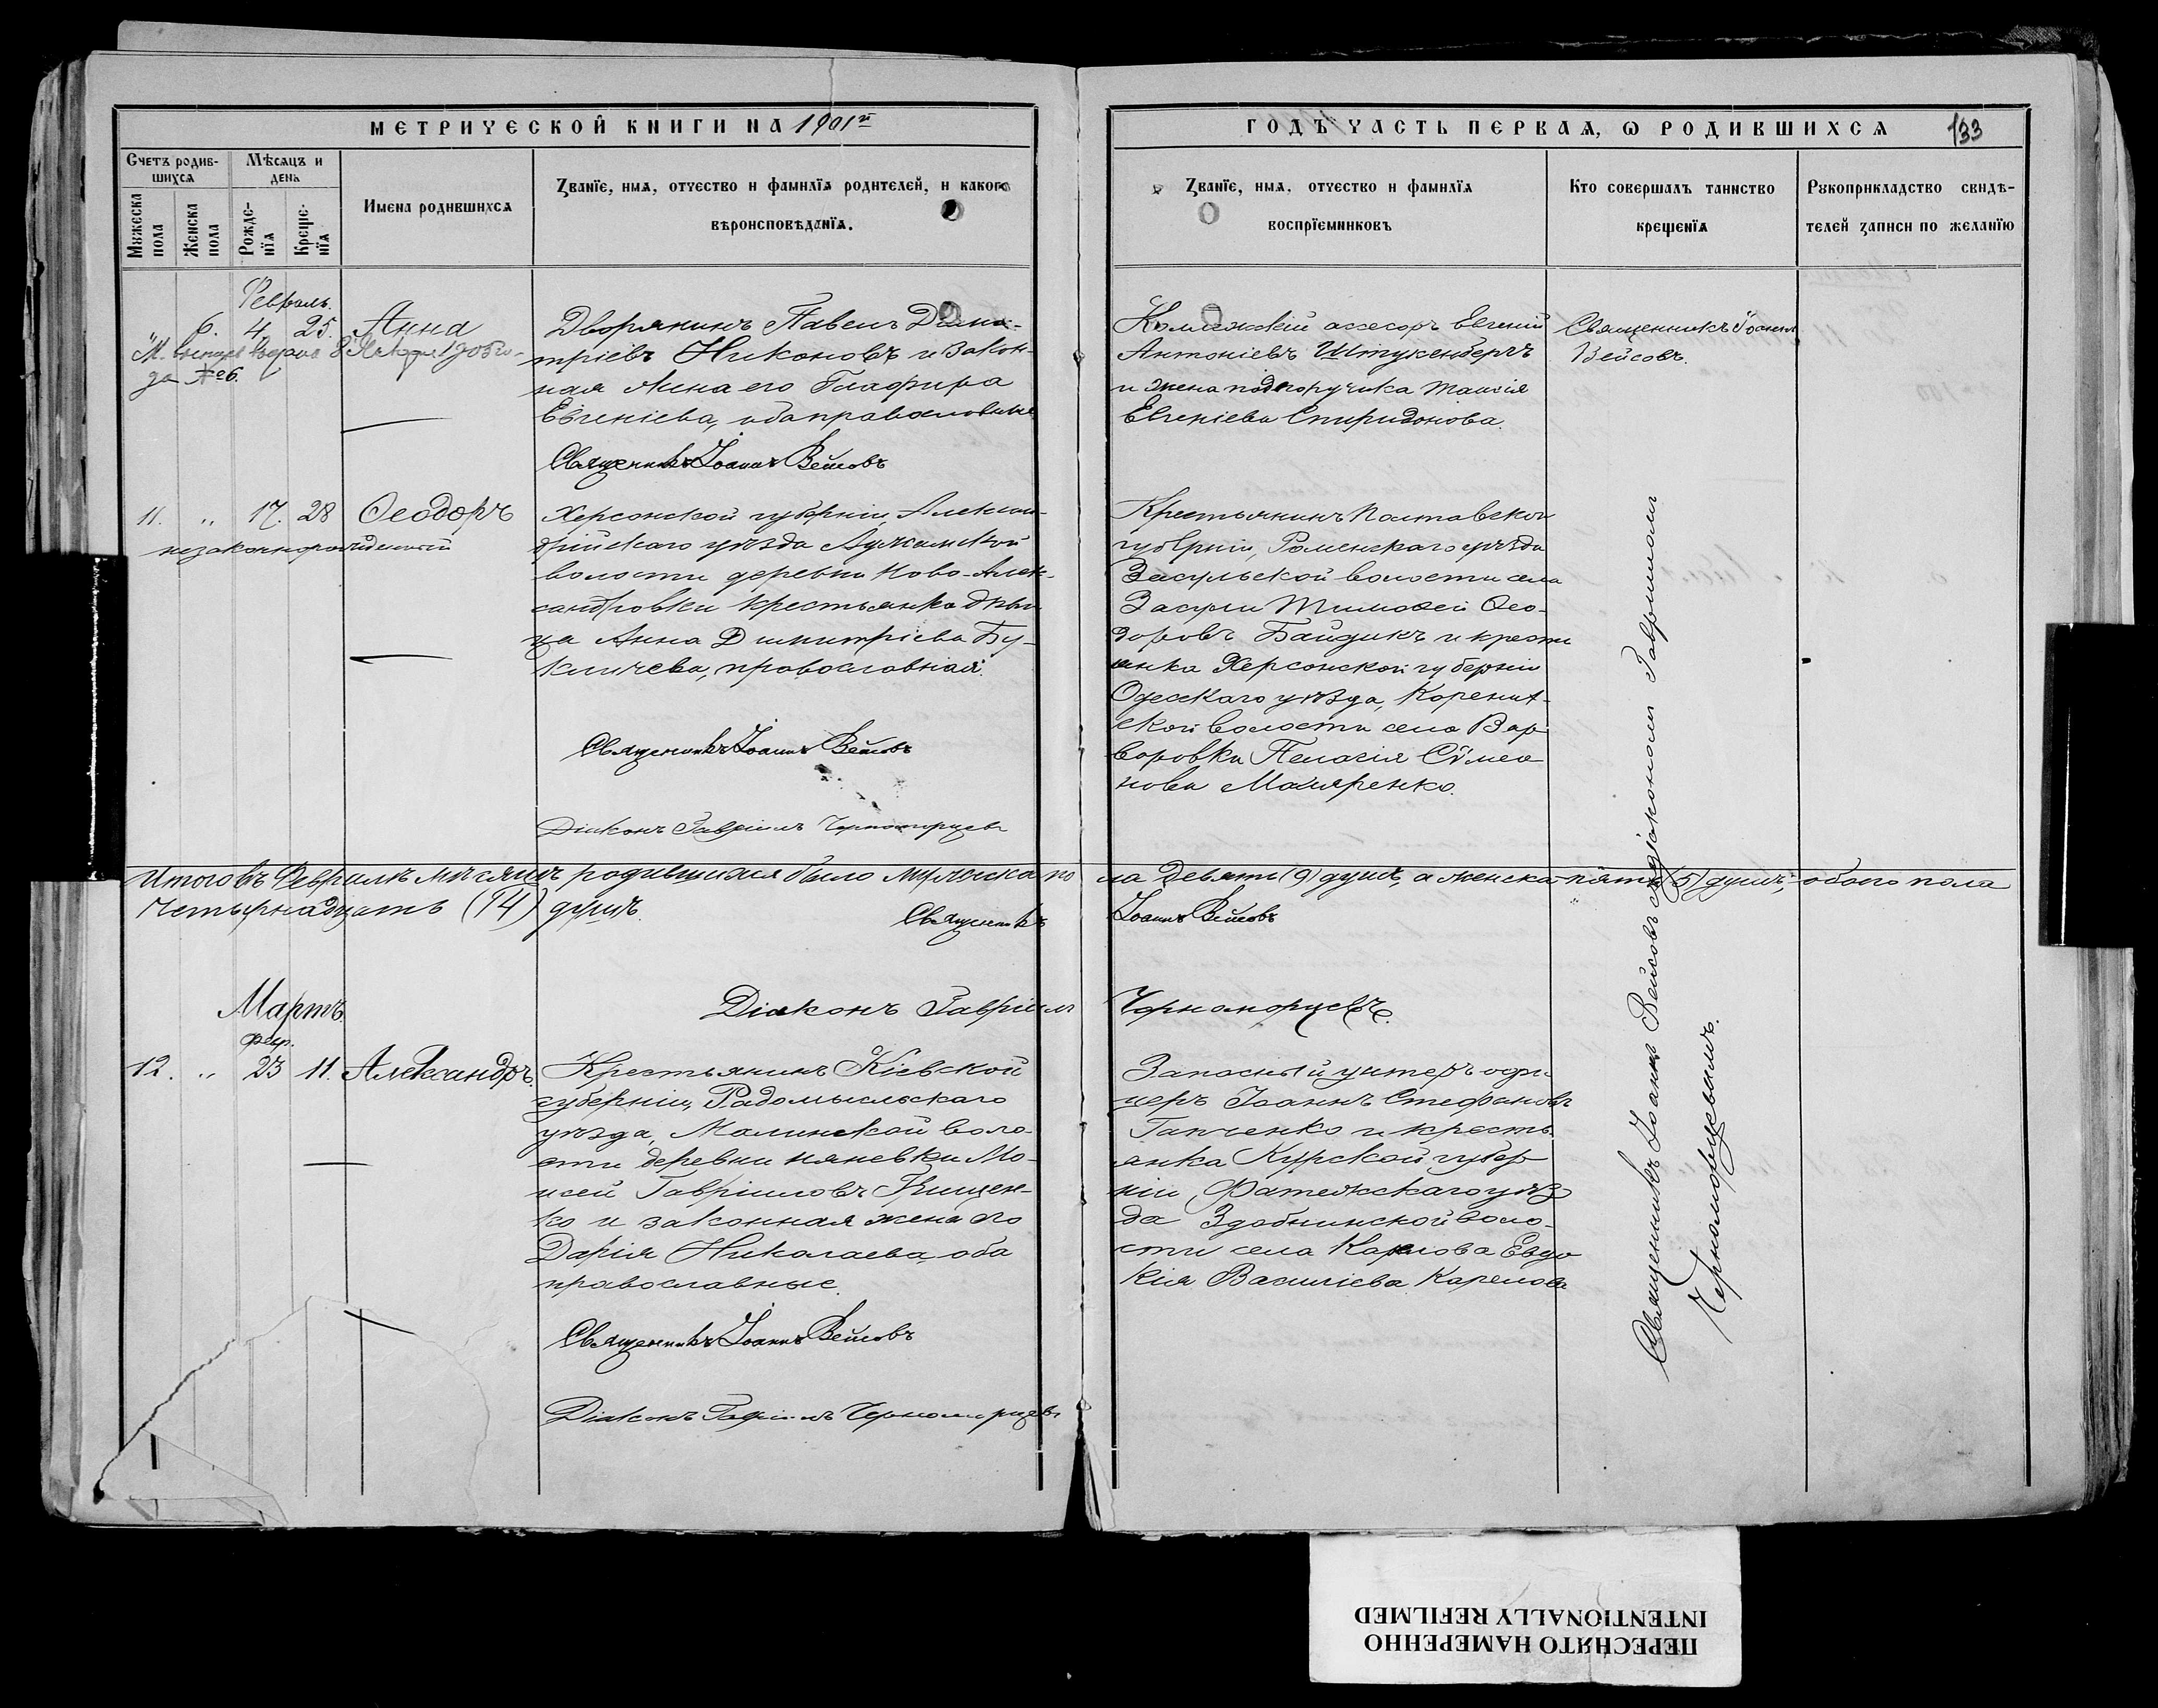 МЕТРИЧЕСКОЙ КНИГИ НА 1901й
ГОДЪ ЧАСТЬ ПЕРВАЯ, Ѡ РОДИВШИХСЯ
133
Счетъ родив-
шихся
Мѣсяцъ и
день
Мужеска
пола
Женска
пола
Рожде-
нїя
Креще-
нїя
Имена родившихся
Званїе, имя, отчество и фамилїя родителей, и какого
вѣроисповѣданїя.
Званїе, имя, отчество и фамилїя
воспрїемниковъ
Кто совершалъ таинство
крещенїя
Рукоприкладство свидѣ-
телей записи по желанїю
Февраль.
" 6. 4. 25. Анна
М. 8 1905 го-
да №6.
Дворянинъ Павелъ Дими-
тріевъ Никоновъ и закон-
ная жена его Глафира
Евгеніева, оба православные
Священникъ Іоаннъ Вейсовъ
Коллежскій ассесоръ Евгеній
Антоніевъ Штукенбергъ
и жена подпоручика Таисія
Евгеніева Спиридонова.
Священникъ Іоаннъ
Вейсовъ.
11. " 17. 28 Ѳеодоръ
незаконнорожденный
Херсонской губерніи, Алексан-
дрійскаго уѣзда
волости деревни Ново-Алек-
сандровки крестьянка дѣви-
ца Анна Димитріева Бу-
кличева, православная.
Священникъ Іоаннъ Вейсовъ
Діаконъ Гавріилъ Черноморцевъ
Крестьянинъ Полтавской
губерніи, Роменскаго уѣзда
Засульской волости села
Засулли Тимоѳей Ѳео-
доровъ Байдикъ и кресть
янка Херсонской губерніи
Одесскаго уѣзда,
ской волости села Вар
воровки Пелагія Сѵмео
нова Маляренко.
Итого въ Февралѣ мѣсяцѣ родившихся было мужеска по
ла девять (9) душъ, а женска пять (5) душъ, обоего пола
четырнадцать (14) душъ.
Священникъ Іоаннъ Вейсовъ
Діаконъ Гавріилъ Черноморцевъ.
Мартъ.
Фев.
12. " 23 11. Александръ.
Крестьянинъ Кіевской
губерніи, Радомысльскаго
уѣзда, Малинской воло-
сти деревни Няневки Мо-
исей Гавріиловъ Кищен-
ко и законная жена его
Дарія Николаева, оба
православные.
Священникъ Іоаннъ Вейсовъ
Діаконъ Гавріилъ Черноморцевъ
Запасный унтеръ офи
церъ Іоаннъ Стефановъ
Гапченко и кресть
янка Курской губер
ніи, Фатежскаго уѣз
да воло-
сти села Евдо
кія Василіева
Священникъ Іоаннъ Вейсовъ съ діакономъ Гавріиломъ
Черноморцевымъ.
ПЕРЕСНЯТО НАМЕРЕННО
INTENTIONALLY REFILMED